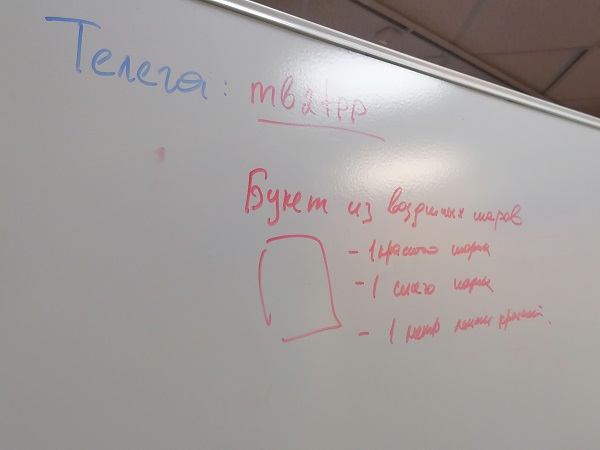 Телега: mb2tpp
Букет из воздушных шаров
- 1 красного шарика
- 1 синего шарика
- 1 метр ленты красной.